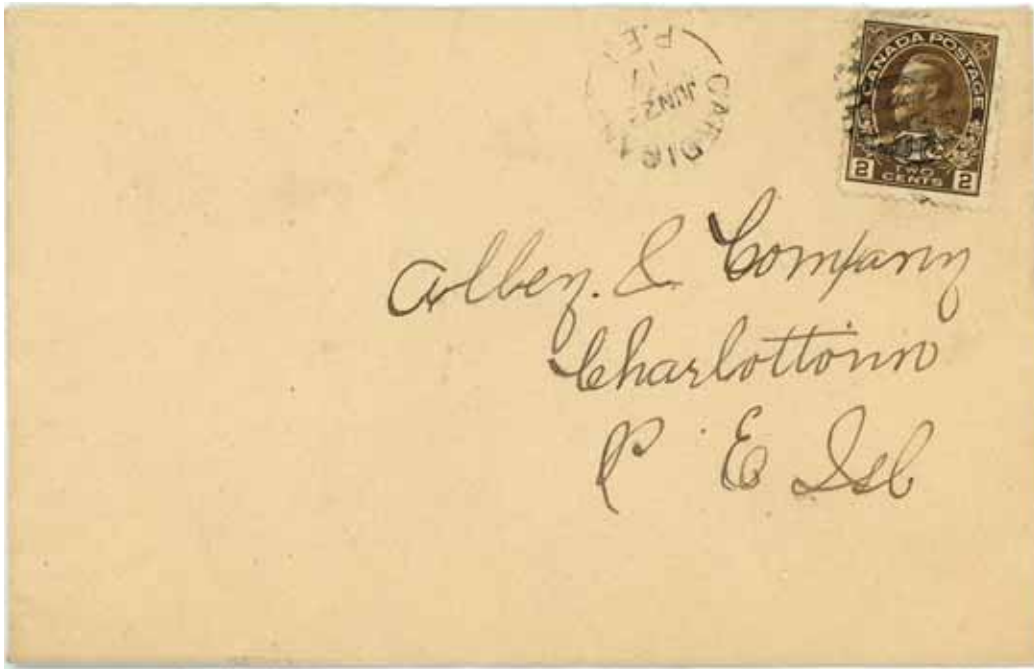 CARDIGAN
P.E.
17
JUN 2
CANADA POSTAGE
2 TWO CENTS 2
& Company
Charlottown
P E Isl